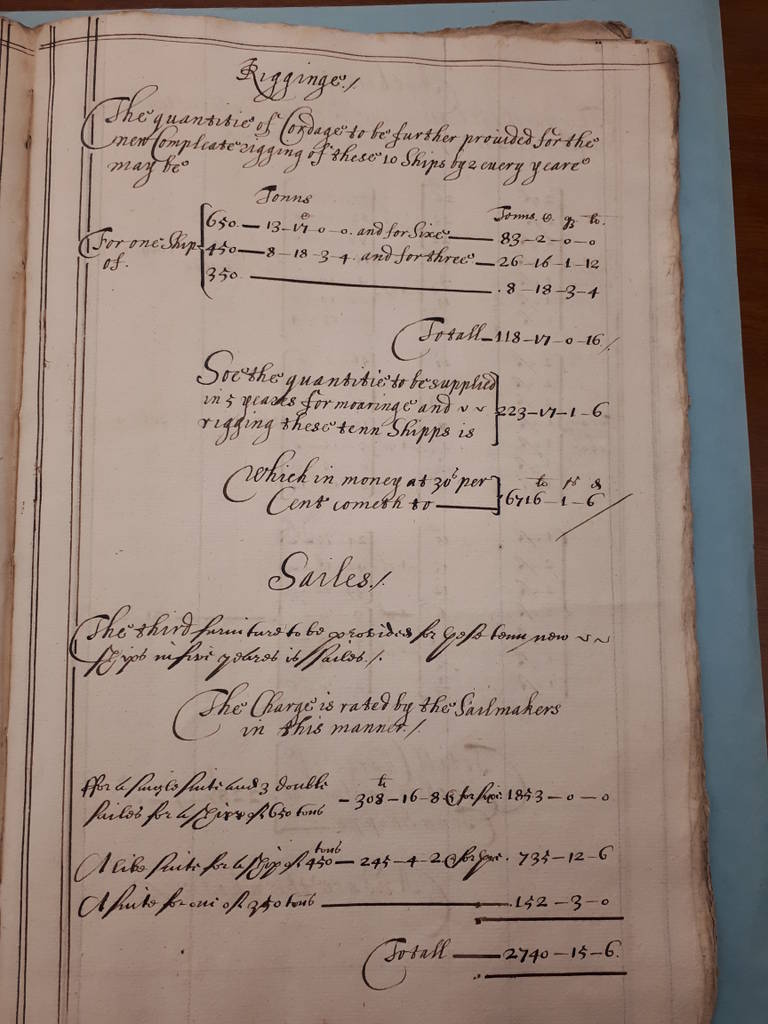 Rigginge./
The quantitie of Cordage to be further provided for the
new Compleate rigging of these 10 Ships by 2 every yeare
may be
Tonns
Tonns. C. qr lb.
For one Ship of.
650. — 13 - 17 - 0 - 0. and for Sixe — 83 - 2 - 0 - 0
450 — 8 - 18 - 3 - 4. and for three — 26 - 16 - 1 - 12
350. — 8 - 18 - 3 - 4
Totall — 118 - 17 - 0 - 16 /
Soe the quantitie to be supplied
in 5 yeares for moaringe and
rigging these tenn Shipps is
223 - 17 - 1 - 6
Which in money at 30s per
Cent cometh to —
li s d
6716 - 1 - 6
Sailes./
The third furniture to be provided for these tenn new
ships in five yeares is Sailes./
The Charge is rated by the Sailmakers
in this manner./
ffor a single suite and 3 double
sailes for a shipp of 650 tons
li
- 308 - 16 - 8 & for sixe. 1853 - 0 - 0
A like suite for a ship of 450 tons — 245 - 4 - 2 & for three. 735 - 12 - 6
A suite for one of 350 tons — 152 - 3 - 0
Totall — 2740 - 15 - 6.